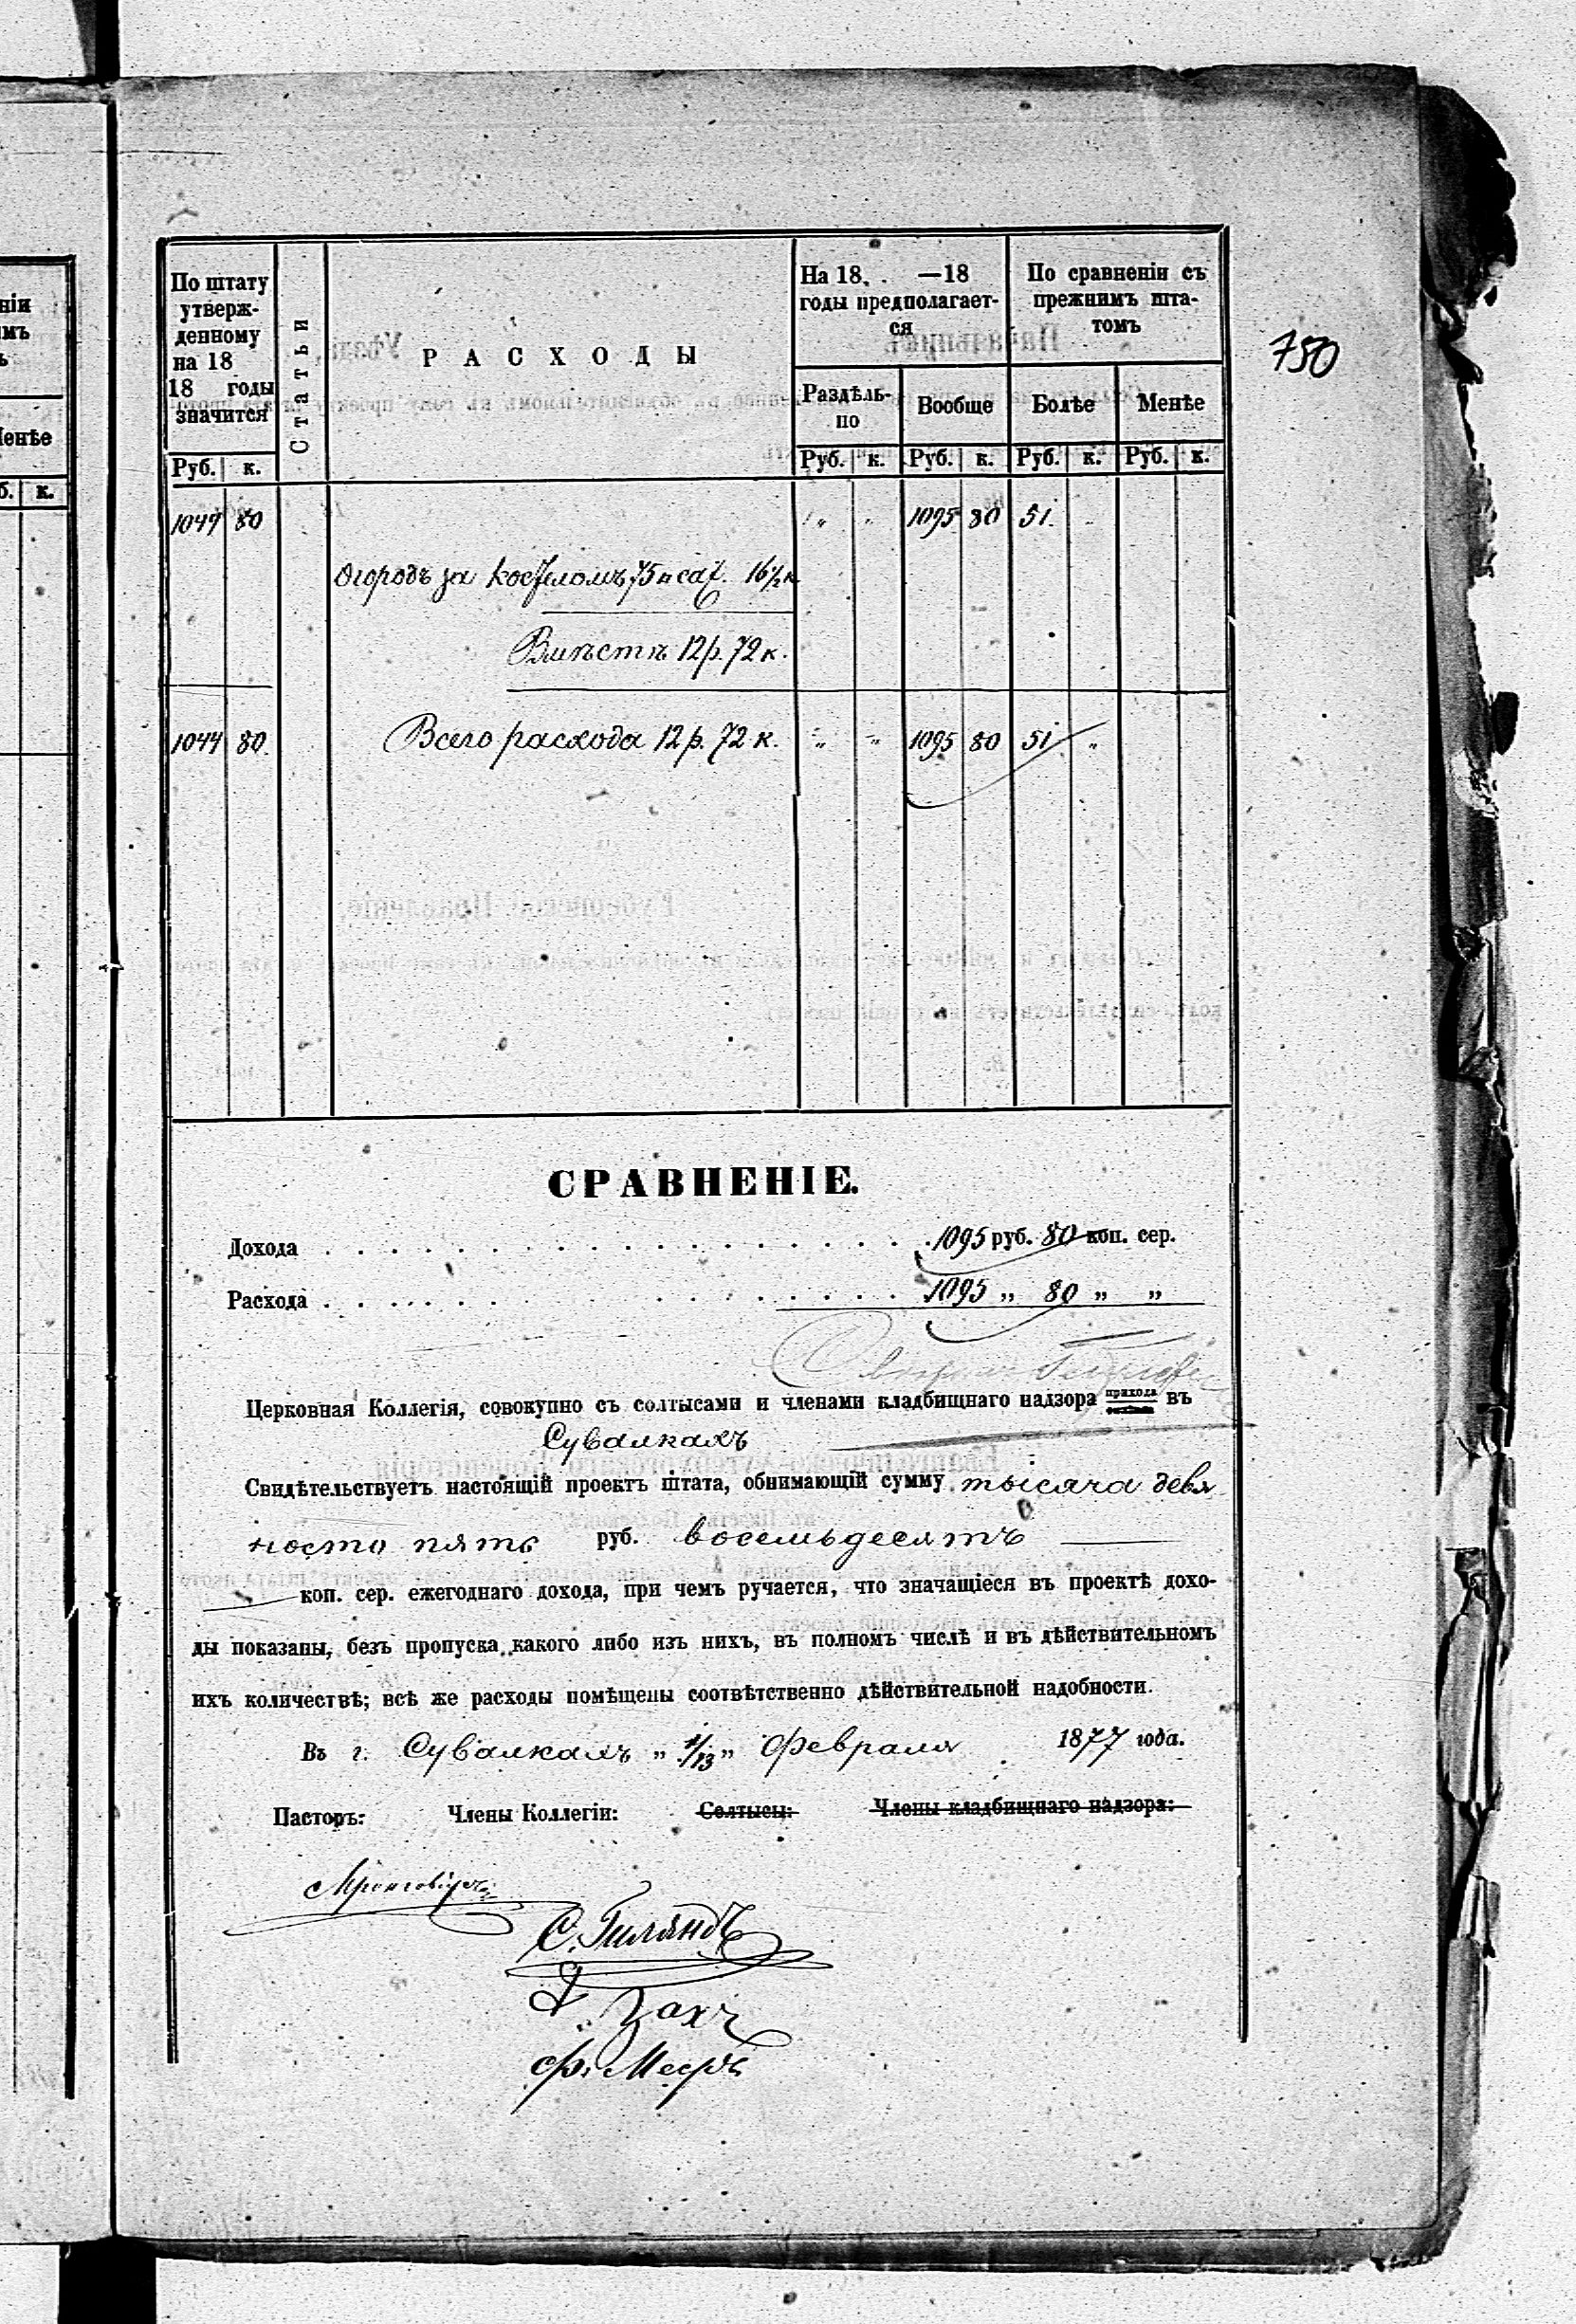 750
По штату
утверж-
денному
на 18
18 годы
значится
Статьи
РАСХОДЫ
На 18 . —18
годы предполагает-
ся
По сравненіи съ
прежнимъ шта-
томъ
Раздѣль-
но
Вообще
Болѣе
Менѣе
Руб. к.
Руб. к. Руб. к. Руб. к. Руб. к.
1044 80 „ „ 1095 80 51 „
Огородъ за костеломъ 75 п саж. 16½ к
Вмѣстѣ 12 р. 72 к.
1044 80 Всего расхода 12 р. 72 к. „ „ 1095 80 51 „
СРАВНЕНІЕ.
Дохода . . . . . 1095 руб. 80 коп. сер.
Расхода . . . . . 1095 „ 80 „ „
Церковная Коллегія, совокупно съ солтысами и членами кладбищнаго надзора прихода въ
Сувалкахъ
Свидѣтельствуетъ настоящій проектъ штата, обнимающій сумму тысяча девя
носто пять руб. восемьдесятъ
коп. сер. ежегоднаго дохода, при чемъ ручается, что значащіеся въ проектѣ дохо-
ды показаны, безъ пропуска какого либо изъ нихъ, въ полномъ числѣ и въ дѣйствительномъ
ихъ количествѣ; всѣ же расходы помѣщены соотвѣтственно дѣйствительной надобности.
Въ г. Сувалкахъ „ 1/13 „ Февраля 1877 года.
Пасторъ: Члены Коллегіи: Солтысы: Члены кладбищнаго надзора:
Мронговіусъ
С. Гиляндъ
Захъ
Ф.
ніи
имъ
Менѣе
б. к.